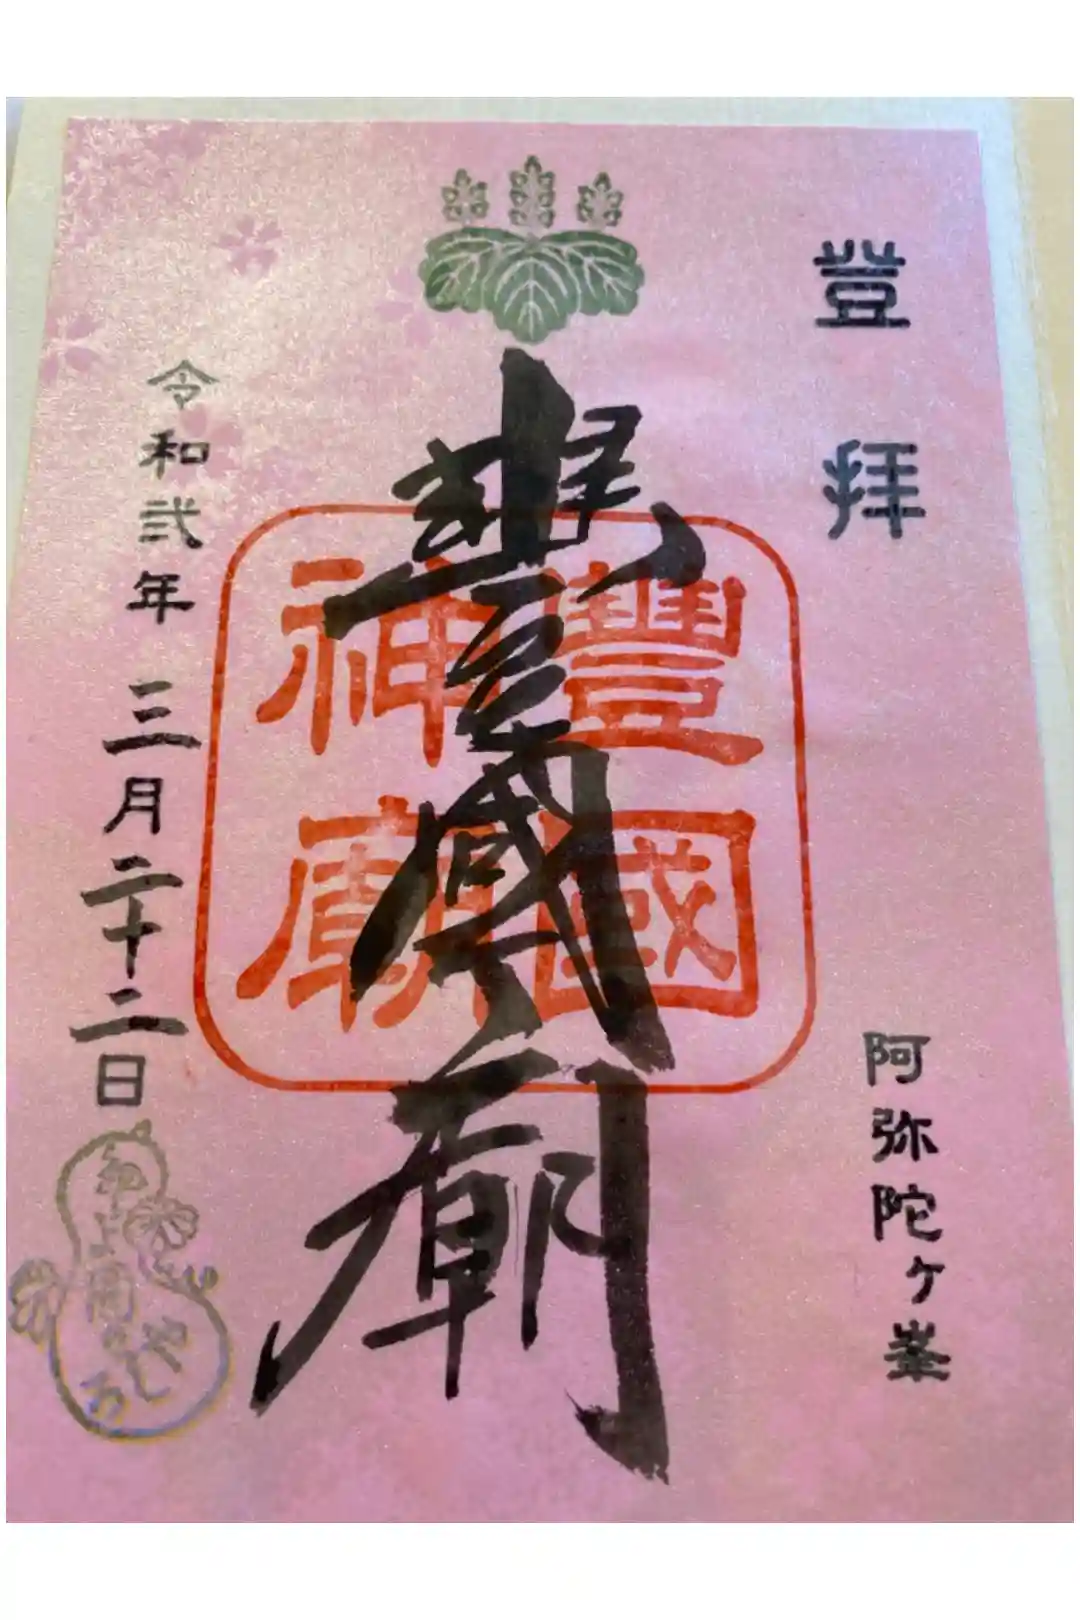 登拝
阿弥陀ヶ峯
豐國廟
豐國
神廟
令和弐年 三月二十二日